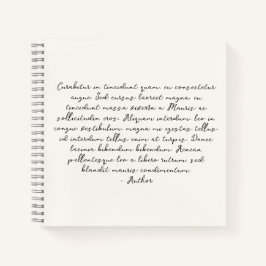 Curabitur in tincidunt quam eu consectetur
augue Sed cursus laoreet magna eu
tincidunt massa viverra a Mauris ac
sollicitudin eros. Aliquam interdum leo in
congue vestibulum magna mi egestas tellus
id interdum tellus enim at turpis. Donec
lacinia bibendum bibendum. Aenean
pellentesque leo a libero rutrum sed
blandit mauris condimentum
- Author